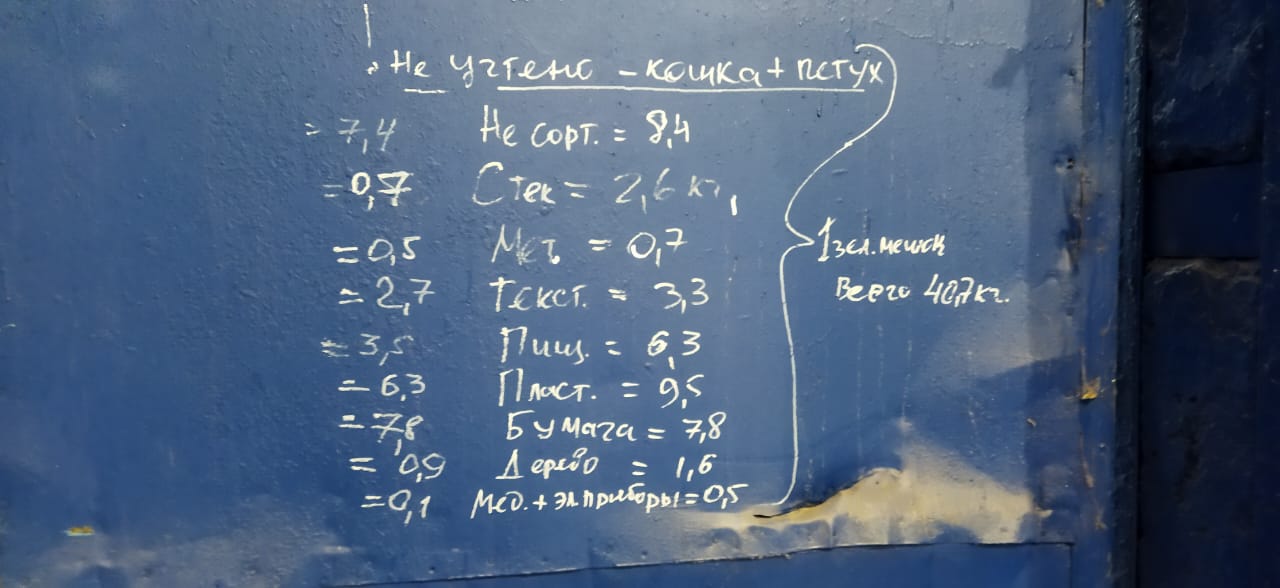 Не учтено – кошка + петух
= 7,4 Не сорт. = 8,4
= 0,7 Стек = 2,6 кг,
= 0,5 Мет. = 0,7
= 2,7 Текст. = 3,3
= 3,5 Пищ. = 6,3
= 6,3 Пласт. = 9,5
= 7,8 Бумага = 7,8
= 0,9 Дерево = 1,6
= 0,1 Мед. + эл. приборы = 0,5
1 зел. мешок
Всего 40,7 кг.